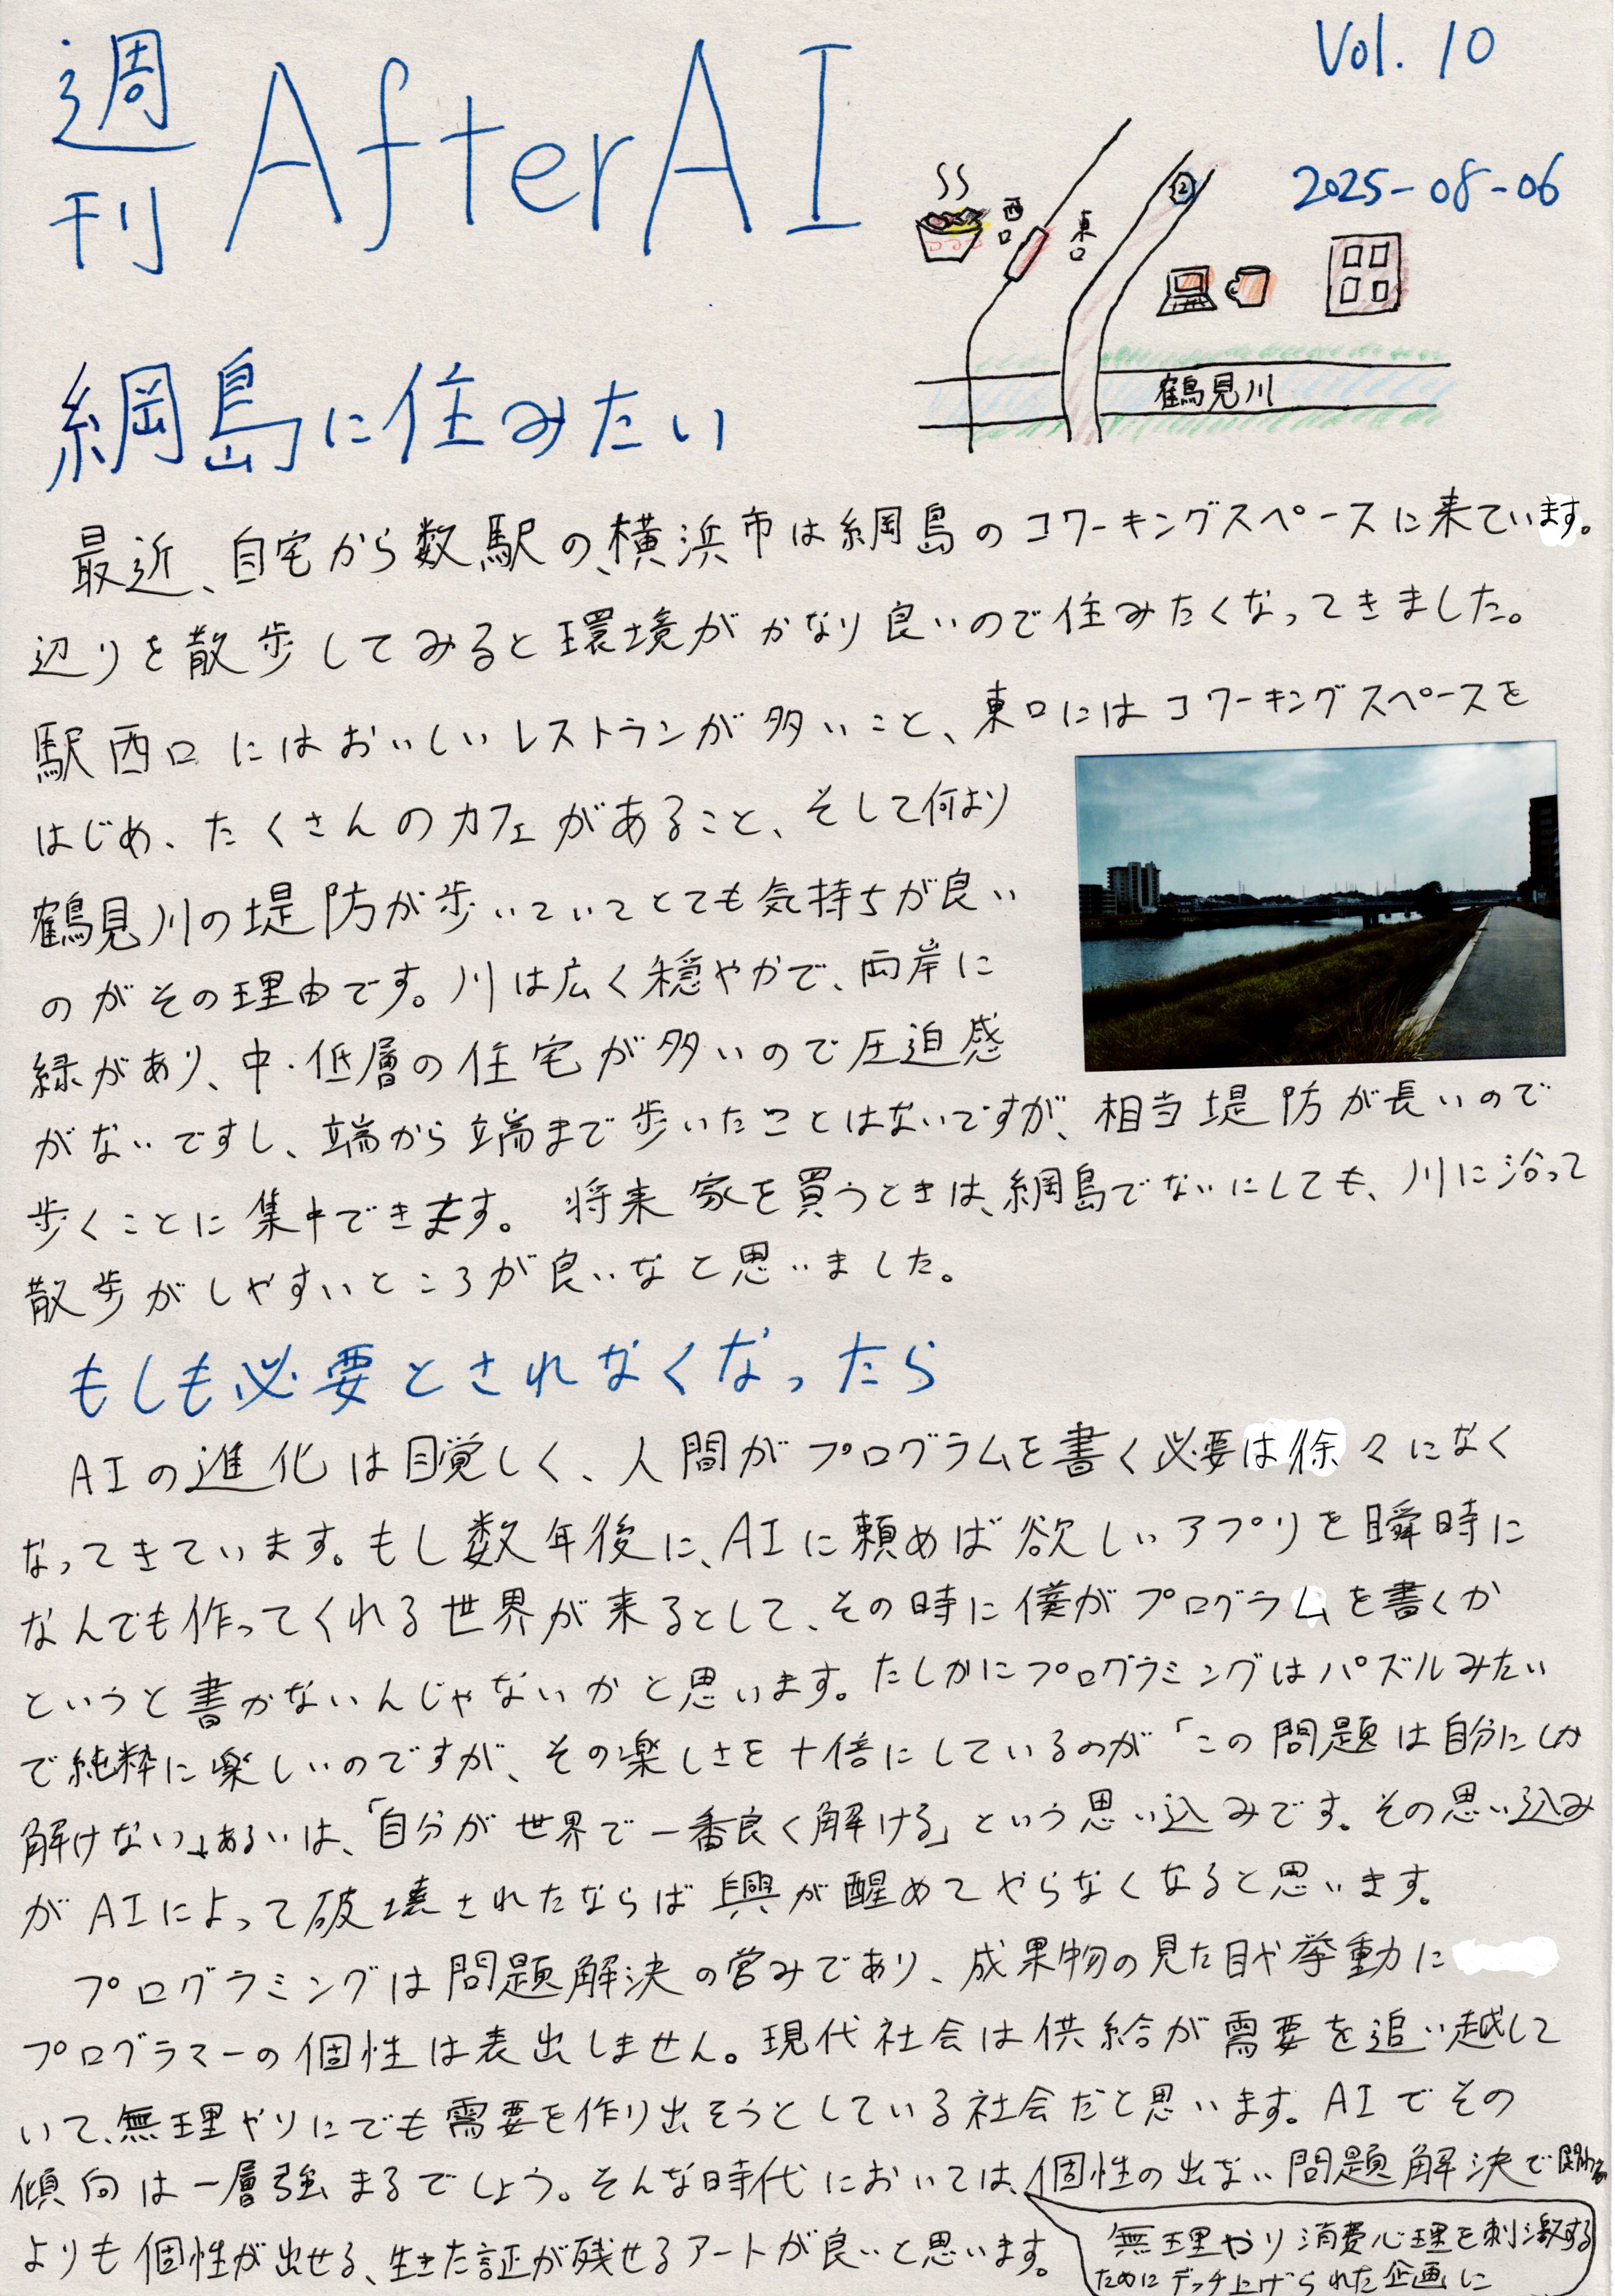 週刊 AfterAI
Vol. 10
2025-08-06
西口
東口
2
鶴見川
綱島に住みたい
最近、自宅から数駅の、横浜市は綱島のコワーキングスペースに来ています。
辺りを散歩してみると環境がかなり良いので住みたくなってきました。
駅西口にはおいしいレストランが多いこと、東口にはコワーキングスペースを
はじめ、たくさんのカフェがあること、そして何より
鶴見川の堤防が歩いていてとても気持ちが良い
のがその理由です。川は広く穏やかで、両岸に
緑があり、中・低層の住宅が多いので圧迫感
がないですし、端から端まで歩いたことはないですが、相当堤防が長いので
歩くことに集中できます。将来家を買うときは、綱島でないにしても、川に沿って
散歩がしやすいところが良いなと思いました。
もしも必要とされなくなったら
AIの進化は目覚しく、人間がプログラムを書く必要は徐々になく
なってきています。もし数年後に、AIに頼めば欲しいアプリを瞬時に
なんでも作ってくれる世界が来るとして、その時に僕がプログラムを書くか
というと書かないんじゃないかと思います。たしかにプログラミングはパズルみたい
で純粋に楽しいのですが、その楽しさを十倍にしているのが「この問題は自分にしか
解けない」あるいは、「自分が世界で一番良く解ける」という思い込みです。その思い込み
がAIによって破壊されたならば興が醒めてやらなくなると思います。
プログラミングは問題解決の営みであり、成果物の見た目や挙動に
プログラマーの個性は表出しません。現代社会は供給が需要を追い越して
いて、無理やりにでも需要を作り出そうとしている社会だと思います。AIでその
傾向は一層強まるでしょう。そんな時代においては、個性の出ない問題解決で関わる
よりも個性が出せる、生きた証が残せるアートが良いと思います。
無理やり消費心理を刺激する
ためにデッチ上げられた企画に